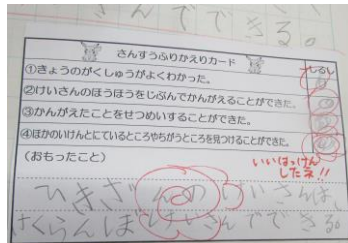 んでできる。
さんすうふりかえりカード
しるし
①きょうのがくしゅうがよくわかった。
②けいさんのほうほうをじぶんでかんがえることができた。
③かんがえたことをせつめいすることができた。
④ほかのいけんとにているところやちがうところを見つけることができた。
(おもったこと)
いいはっけん
したネ!!
ひきざんのけいさんは、
さくらんぼけいさんでできる